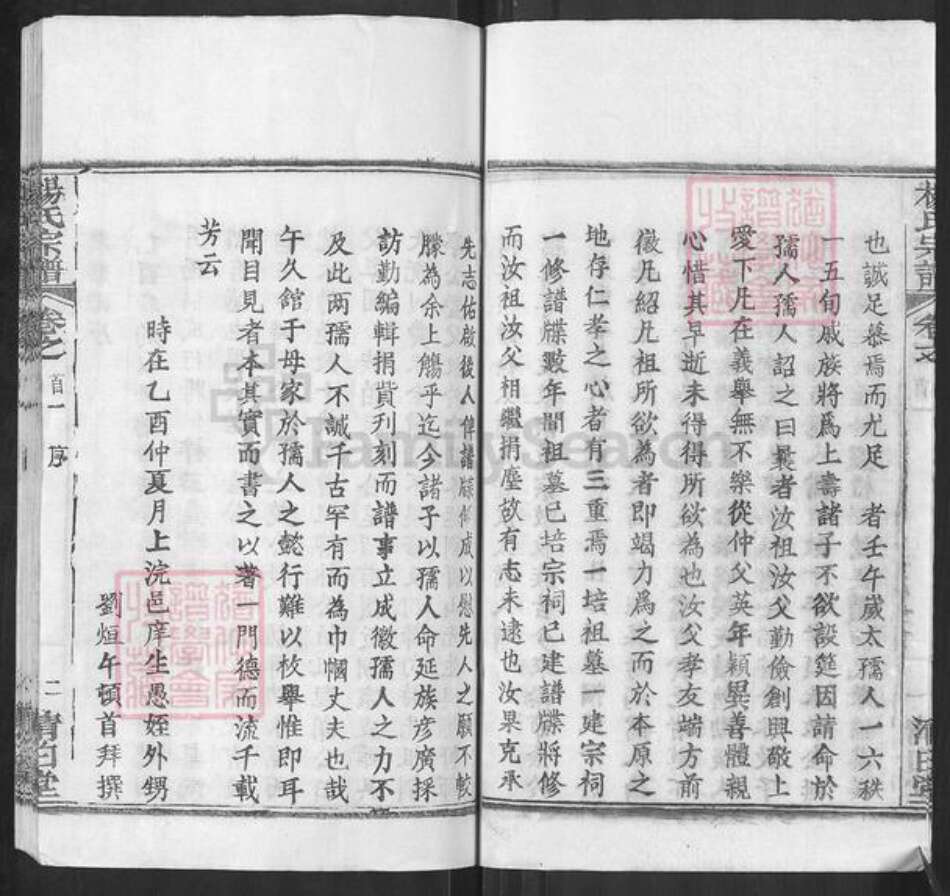 楊氏宗譜
卷之
也誠足慕焉而尤足 者壬午歲太孺人一六秩
一五旬戚族將爲上壽諸子不欲設筵因請命於
孺人孺人詔之曰曩者汝祖汝父勤儉創興敬上
愛下凡在義舉無不樂從仲父英年穎異善體親
心惜其早逝未得得所欲為也汝父孝友端方前
徽凡紹凡祖所欲為者即竭力爲之而於本原之
地存仁孝之心者有三重焉一培祖墓一建宗祠
一修譜牒數年間祖墓已培宗祠已建譜牒將修
而汝祖汝父相繼捐塵欲有志未逮也汝果克承
先志佑啟後人俾譜牒修成以慰先人之願不較
朦為余上觴乎迄今諸子以孺人命延族彥廣採
訪勤編輯捐貲刋刻而譜事立成徽孺人之力不
及此两孺人不誠千古罕有而為巾幗丈夫也哉
午久館于母家於孺人之懿行難以枚舉惟即耳
聞目見者本其實而書之以著一門德而流千載
芳云
時在乙酉仲夏月上浣邑庠生愚姪外甥
劉烜午頓首拜撰
楊氏宗譜
卷之
首一
序
二
清白堂
FamilySearch